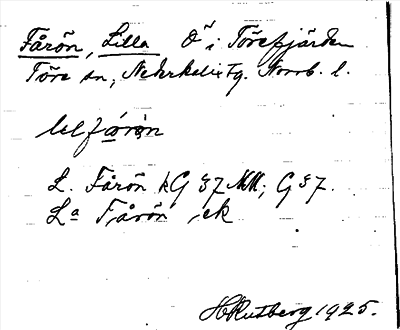 Fårön, Lilla Ö i Törefjärden
Töre sn, Nederkalix tg. Norrb. l.
lilfårön
L. Fårön kG 37 MM; G 37.
La Fårön ek
H Rutberg 1925.